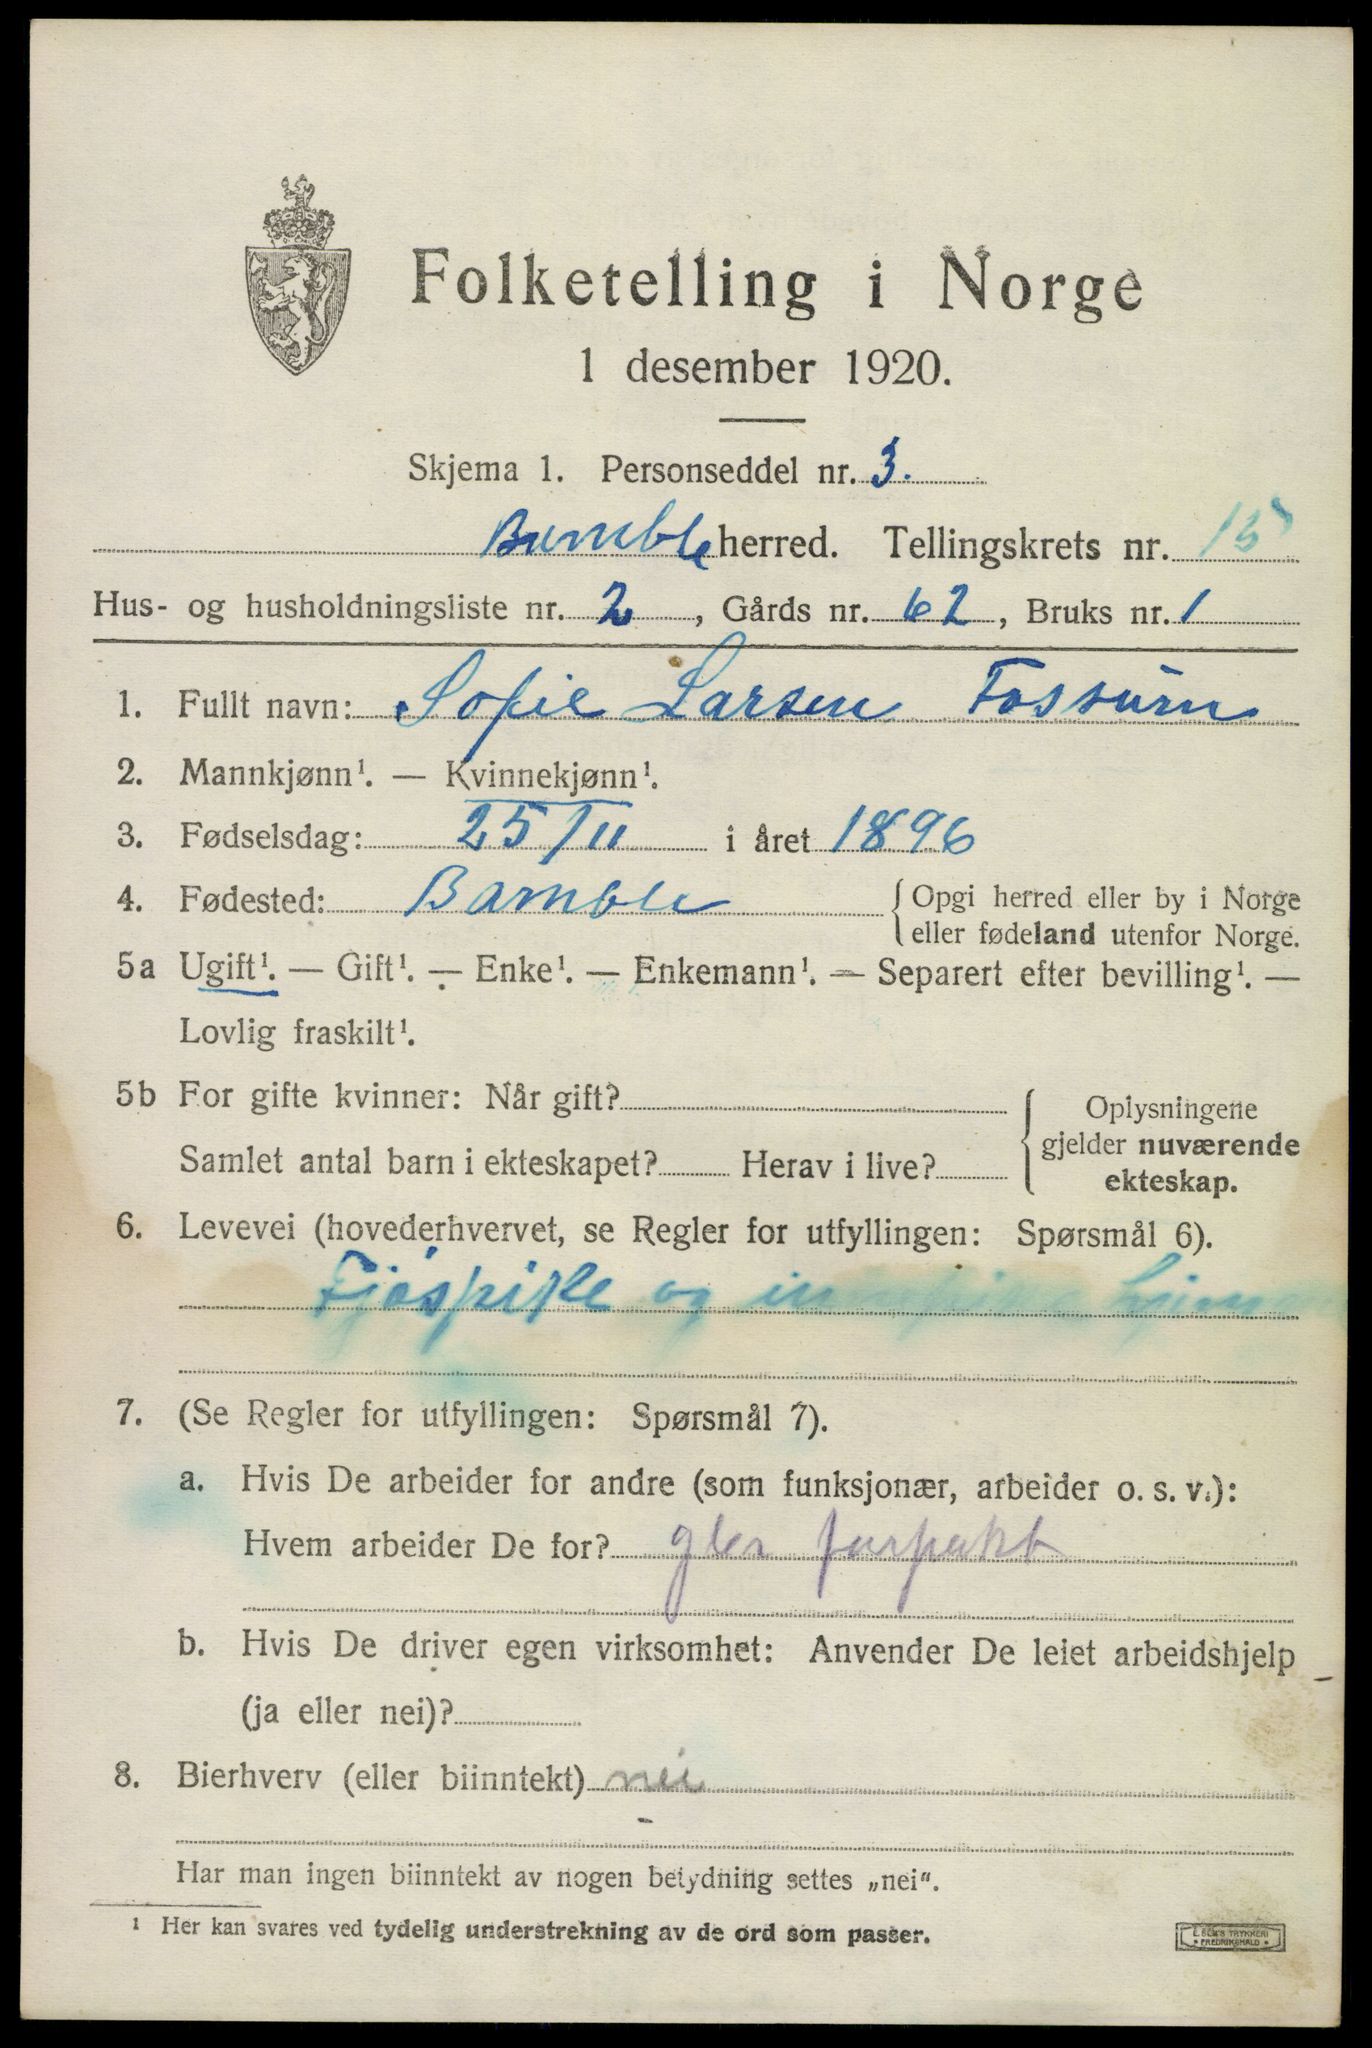 Folketelling i Norge
1 desember 1920.
Skjema 1. Personseddel nr. 3.
Bamble herred. Tellingskrets nr. 15
Hus- og husholdningsliste nr. 2, Gårds nr. 62, Bruks nr. 1
1. Fullt navn: Sofie Larsen Fossum
2. Mannkjønn¹. — Kvinnekjønn¹.
3. Fødselsdag: 25/11 i året 1896
4. Fødested: Bamble { Opgi herred eller by i Norge
eller fødeland utenfor Norge.
5a Ugift¹. — Gift¹. — Enke¹. — Enkemann¹. — Separert efter bevilling¹. —
Lovlig fraskilt¹.
5b For gifte kvinner: Når gift?
Samlet antal barn i ekteskapet? Herav i live?
{ Oplysningene
gjelder nuværende
ekteskap.
6. Levevei (hovederhvervet, se Regler for utfyllingen: Spørsmål 6).
Fjøspike og
7. (Se Regler for utfyllingen: Spørsmål 7).
a. Hvis De arbeider for andre (som funksjonær, arbeider o. s. v.):
Hvem arbeider De for?
b. Hvis De driver egen virksomhet: Anvender De leiet arbeidshjelp
(ja eller nei)?
8. Bierhverv (eller biinntekt) nei
Har man ingen biinntekt av nogen betydning settes „nei".
¹ Her kan svares ved tydelig understrekning av de ord som passer.
E. SEM'S TRYKKERI
FREDRIKSHALD